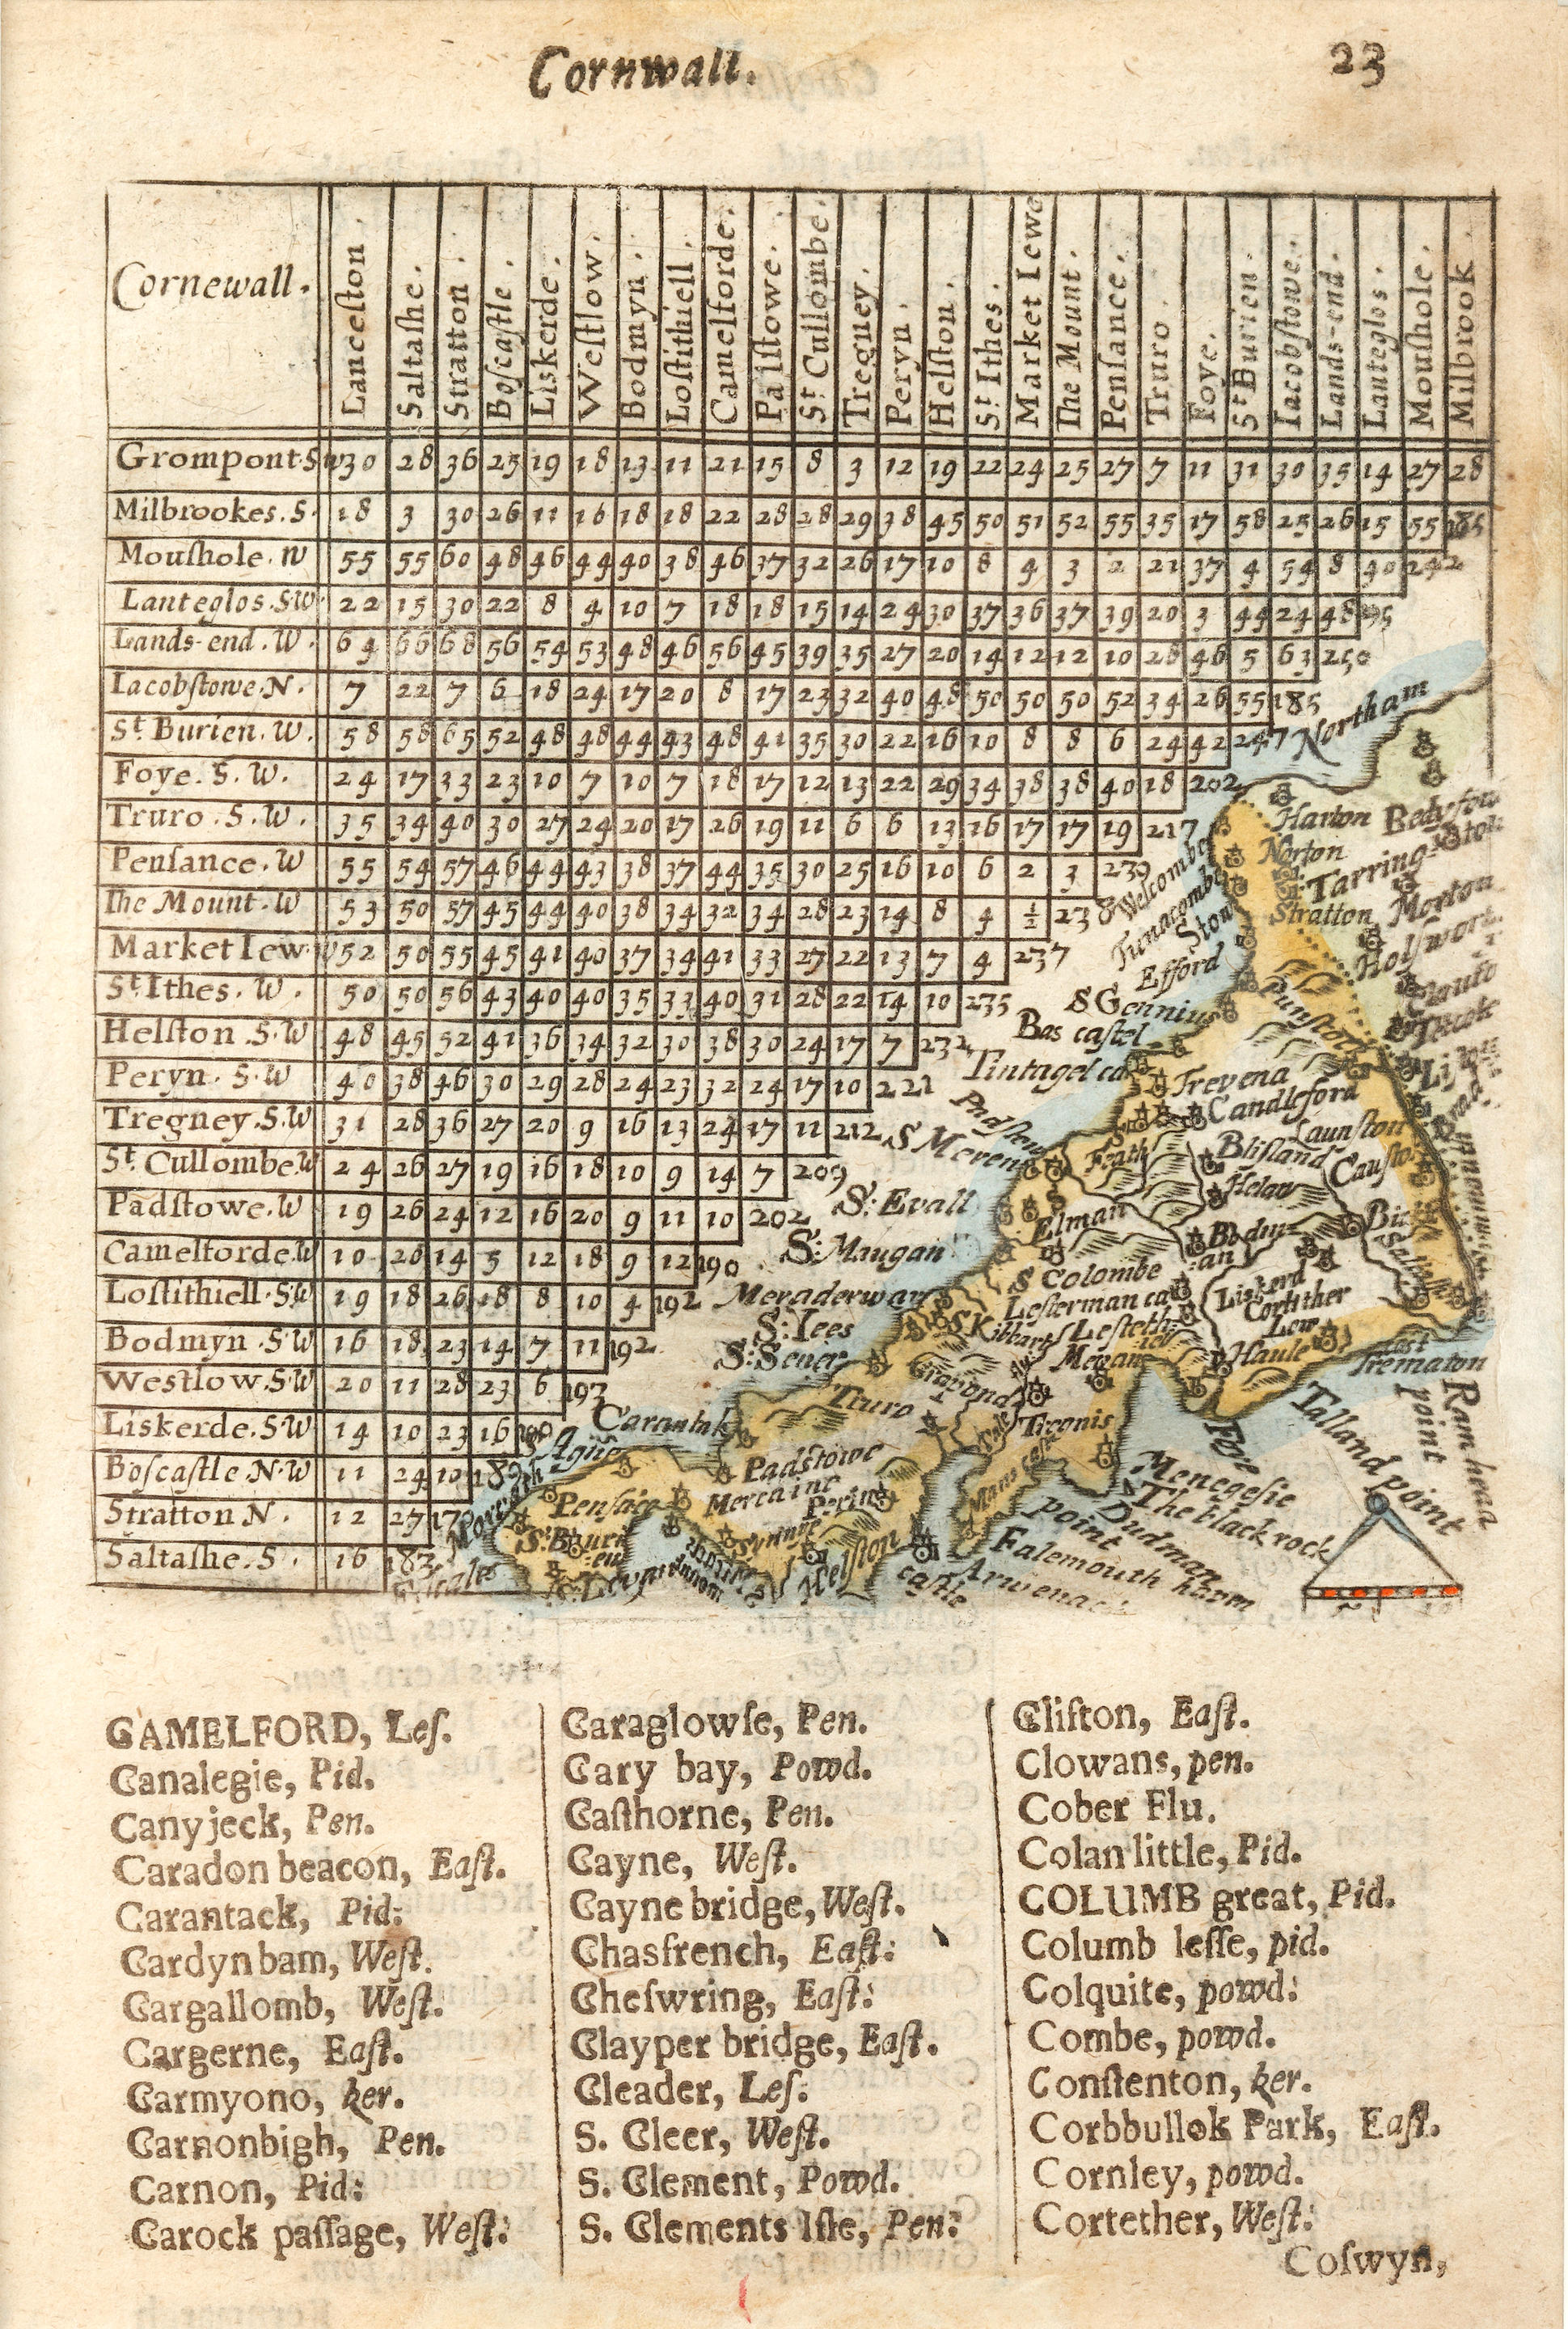 Cornwall.
23
Cornewall.
Lanceſton.
Saltaſhe.
Stratton.
Boſcaſtle.
Liskerde.
Weſtlow.
Bodmyn.
Loſtithiell.
Camelforde.
Paiſtowe.
St Cullombe.
Tregney.
Peryn.
Helſton.
St. Ithes.
Market Iewe
The Mount.
Penſance.
Truro.
Foye.
St Burien.
Iacobſtowe.
Lands-end.
Lanteglos.
Mouſhole.
Milbrook.
Grompont.S W 30 28 36 25 19 18 13 11 21 15 8 3 12 19 22 24 25 27 7 11 31 30 35 14 27 28
Milbrookes.S. 18 3 30 26 11 16 18 18 22 28 28 29 38 45 50 51 52 55 35 17 58 25 26 15 55 185
Mouſhole.W 55 55 60 48 46 44 40 38 46 37 32 26 17 10 8 4 3 2 21 37 4 54 8 40 242
Lanteglos.SW. 22 15 30 22 8 4 10 7 18 18 15 14 24 30 37 36 37 39 20 3 44 24 48
Lands-end.W. 64 66 68 56 54 53 48 46 56 45 39 35 27 20 14 12 12 10 28 46 5 63 250
Iacobſtowe.N. 7 22 7 6 18 24 17 20 8 17 23 32 40 48 50 50 50 52 34 26 55 185
St. Burien.W. 58 58 65 52 48 48 44 43 48 41 35 30 22 16 10 8 8 6 24 42 247
Foye.S.W. 24 17 33 23 10 7 10 7 18 17 12 13 22 29 34 38 38 40 18 202
Truro.S.W. 35 34 40 30 27 24 20 17 26 19 11 6 6 13 16 17 17 19 217
Penſance.W 55 54 57 46 44 43 38 37 44 35 30 25 16 10 6 2 3 239
The Mount.W 53 50 57 45 44 40 38 34 32 34 28 23 14 8 4 ½ 238
Market Iew.W 52 50 55 45 41 40 37 34 41 33 27 22 13 7 4 237
St. Ithes.W. 50 50 56 43 40 40 35 33 40 31 28 22 14 10 235
Helſton.S.W 48 45 52 41 36 34 32 30 38 30 24 17 7 232
Peryn.S.W 40 38 46 30 29 28 24 23 32 24 17 10 221
Tregney.S.W 31 28 36 27 20 9 16 13 24 17 11 212
St. Cullombe.W 24 26 27 19 16 18 10 9 14 7 209
Padſtowe.W 19 26 24 12 16 20 9 11 10 202
Camelforde.W 10 20 14 5 12 18 9 12 190
Loſtithiell.S.W 19 18 26 18 8 10 4 192
Bodmyn.S.W 16 18 23 14 7 11 192
Westlow.S.W 20 11 28 23 6 193
Liskerde.S.W 14 10 23 16 190
Boſcaſtle.N.W 11 24 10 189
Stratton N. 12 27 17
Saltaſhe.S. 16 183
Northam
Harton
Norton
Tarring
Stratton
Morton
Welcombe
Tunacombe
Stow
Efford
S Gennius
Bos caſtel
Tintagel ca
Trevena
Candleford
Padstow
S Meren
Feath
Bliſland
Launſton
Helan
S: Evall
Elman
Bodmi
an
S: Maugan
S Colombe
Lesterman ca
Liskerd
Cortither
Low
Meraderwan
S Kibbart
Leſteth
iell
S: Iees
S: Sener
Megan
Haule
East
Trematon
Grapond
Truro
Treonis
Foye
Talland point
Ram head
point
Carantak
S Agnes
Padſtowe
Mercaine
Perin
Penſace
S: Buri
en
Helſton
Falemouth haven
Arwenac
caſtle
Menegeſie
The black rock
Dudman
point
CAMELFORD, Leſ.
Canalegie, Pid.
Canyjeck, Pen.
Caradon beacon, Eaſt.
Carantack, Pid:
Cardynbam, Weſt.
Cargallomb, Weſt.
Cargerne, Eaſt.
Carmyono, ker.
Carnonbigh, Pen.
Carnon, Pid:
Carock paſſage, Weſt:
Caraglowſe, Pen.
Cary bay, Powd.
Caſthorne, Pen.
Cayne, Weſt.
Cayne bridge, Weſt.
Chasfrench, Eaſt:
Cheſwring, Eaſt:
Clayper bridge, Eaſt.
Cleader, Leſ:
S. Cleer, Weſt.
S. Clement, Powd.
S. Clements Iſle, Pen:
Clifton, Eaſt.
Clowans, pen.
Cober Flu.
Colan little, Pid.
COLUMB great, Pid.
Columb leſſe, pid.
Colquite, powd:
Combe, powd.
Conſtenton, ker.
Corbbullok Park, Eaſt.
Cornley, powd.
Cortether, Weſt:
Coſwyn,